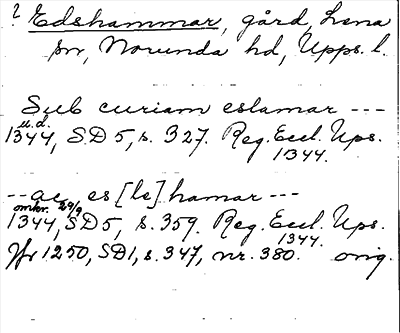 ? Edshammar, gård, Lena
sn, Norunda hd, Upps. l.
Sub curiam eslamar ---
u.d.
1344, SD 5, s. 327. Reg. Eccl. Ups.
1344.
-- ac es [le] hamar ---
omkr. 29/9
1344, SD 5, s. 359. Reg. Eccl. Ups.
1344.
Jfr 1250, SD 1, s. 347, nr. 380. orig.